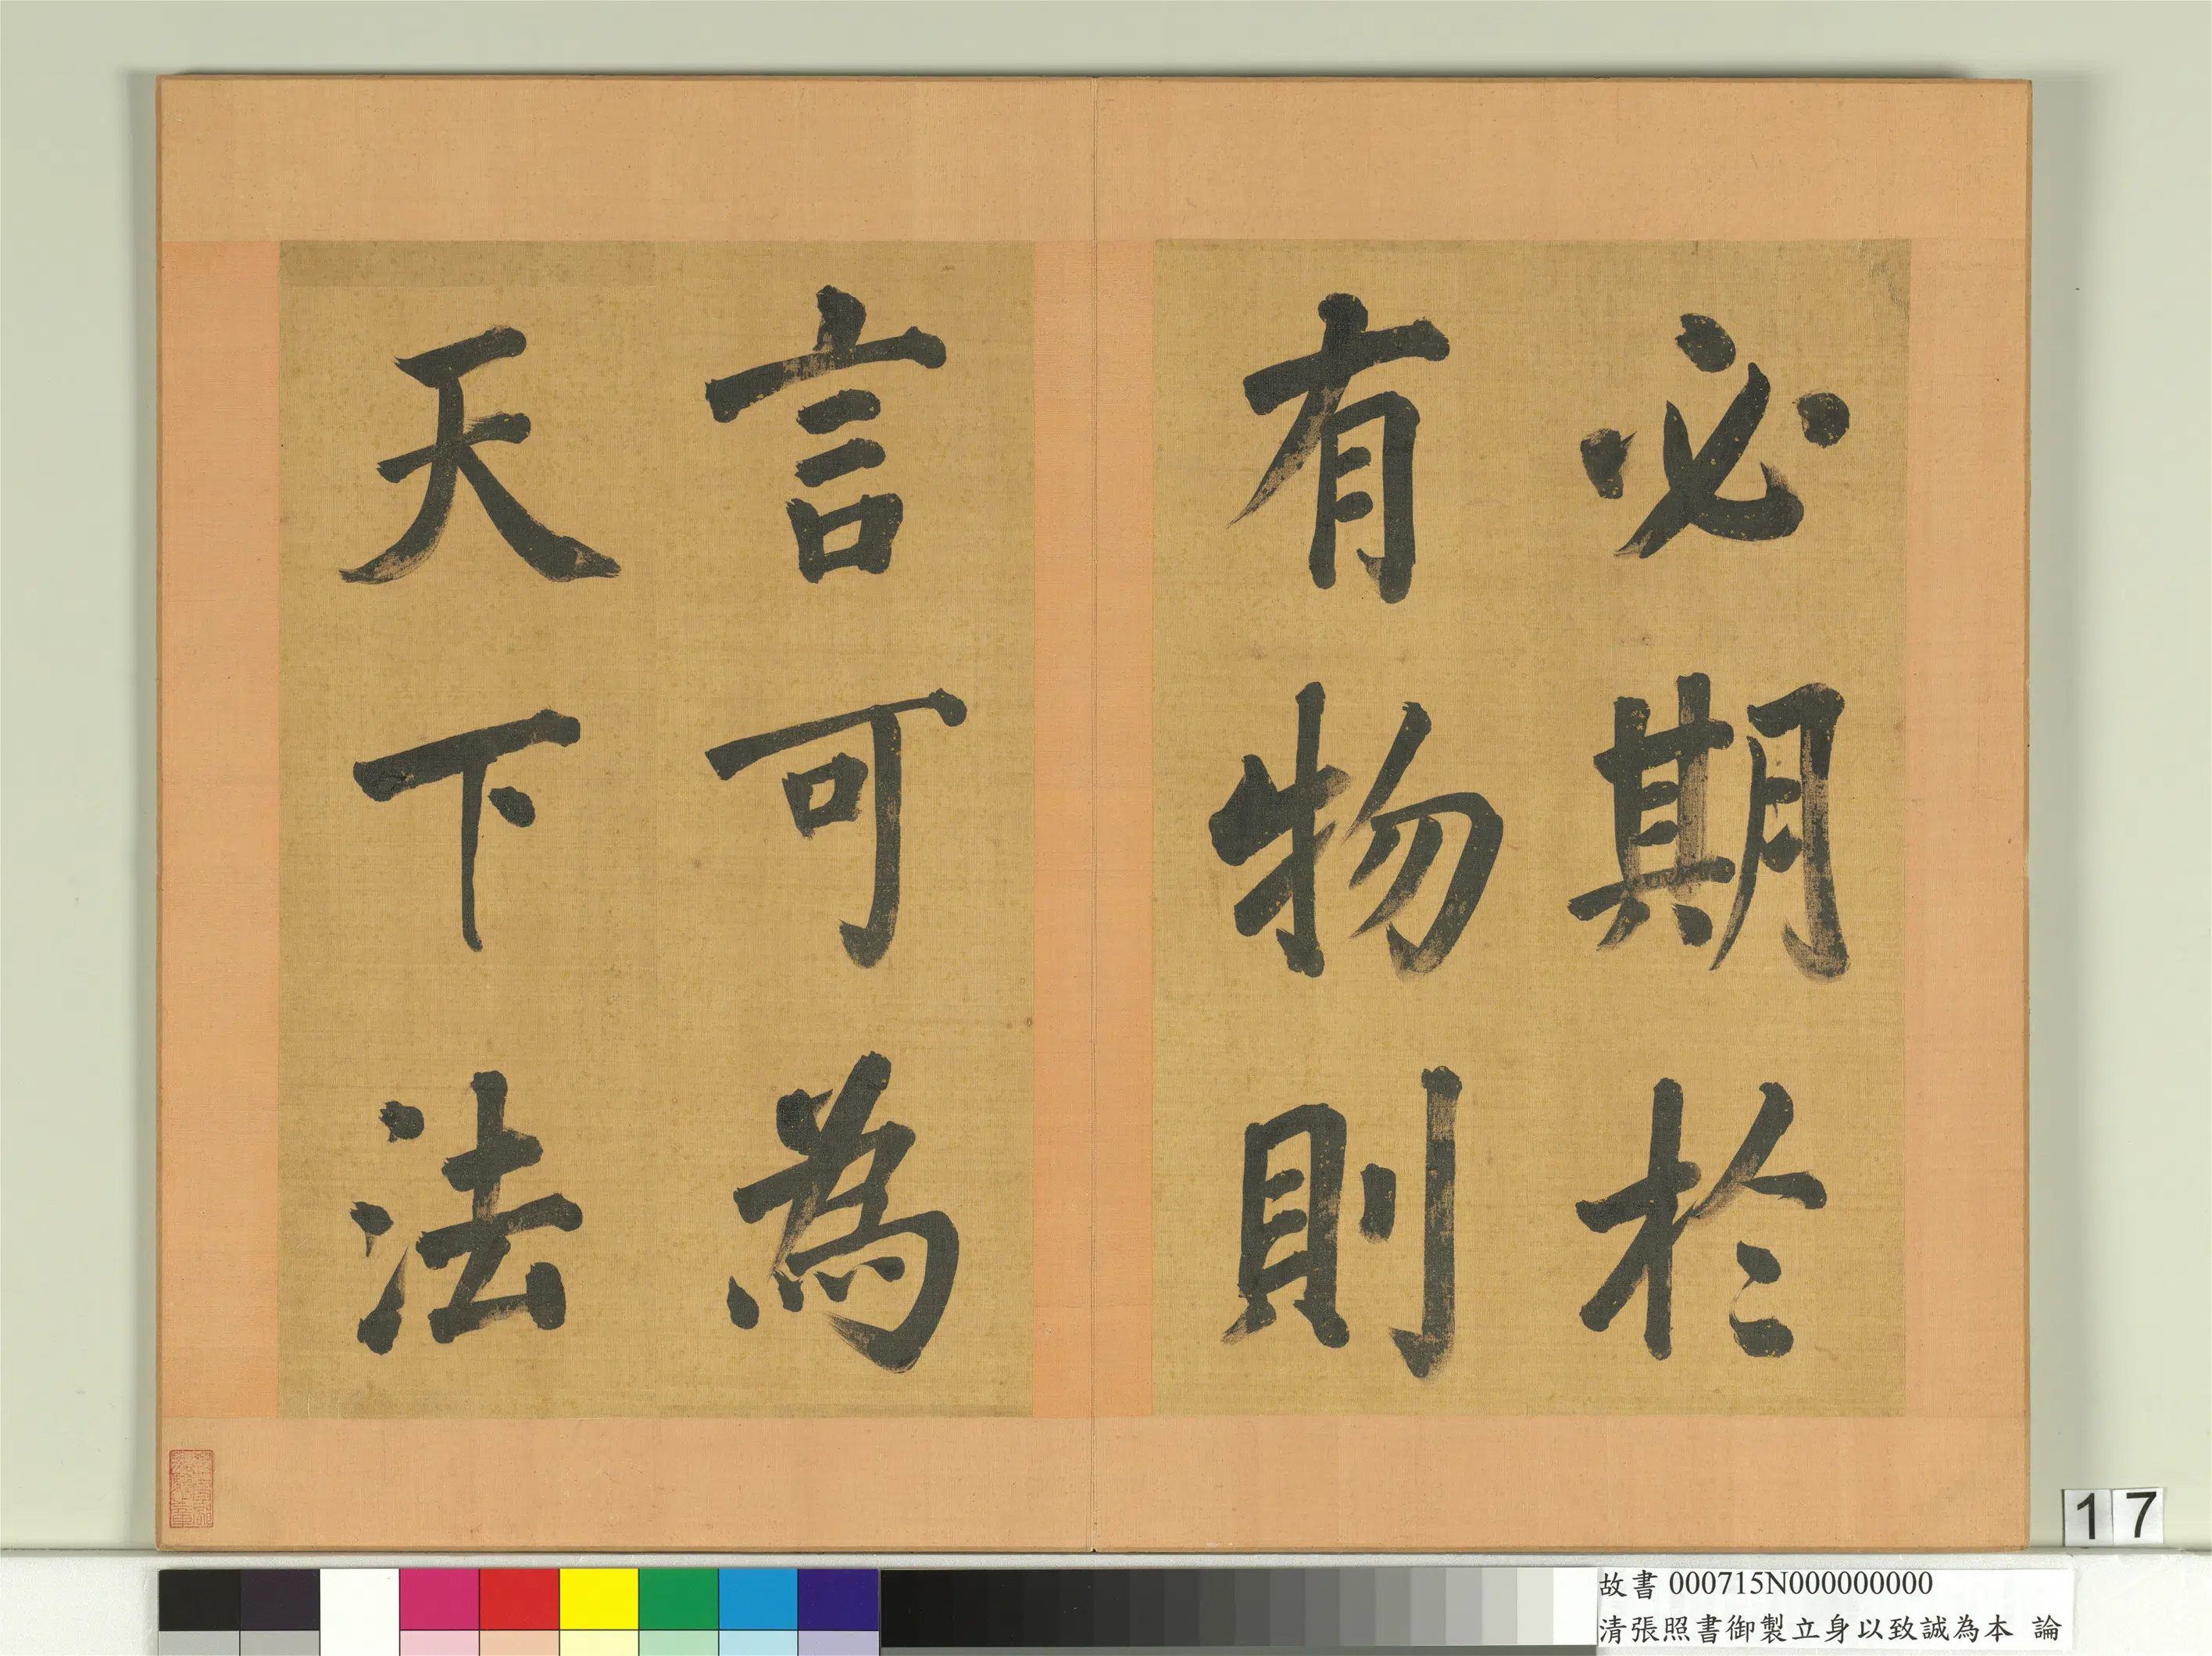 必期於
有物則
言可為
天下法
17
故書 000715N000000000
清張照書御製立身以致誠為本 論